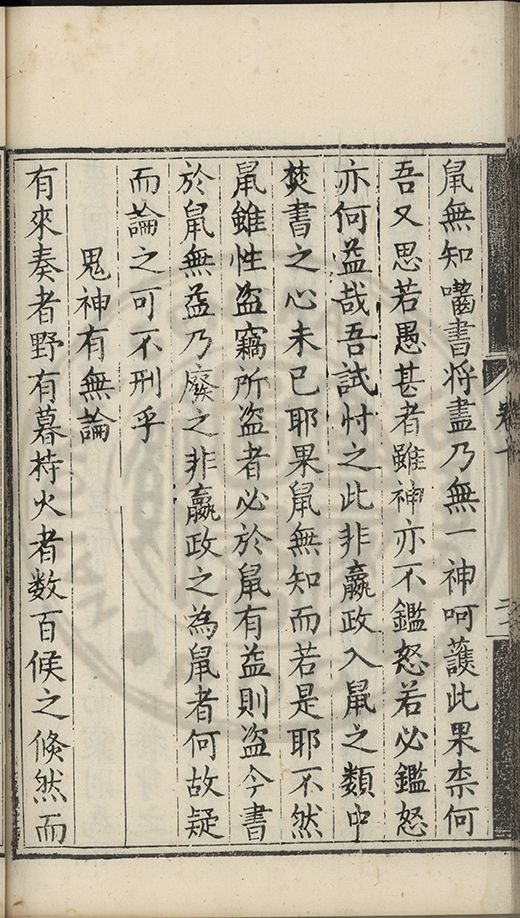 鼠無知囓書将盡乃無一神呵護此果柰何
吾又思若愚甚者雖神亦不鑑怒若必鑑怒
亦何益哉吾試忖之此非嬴政入鼠之類中
焚書之心未已耶果鼠無知而若是耶不然
鼠雖性盗竊所盗者必於鼠有益則盗今書
於鼠無益乃廢之非嬴政之為鼠者何故疑
而論之可不刑乎
鬼神有無論
有來奏者野有暮持火者数百候之倐然而